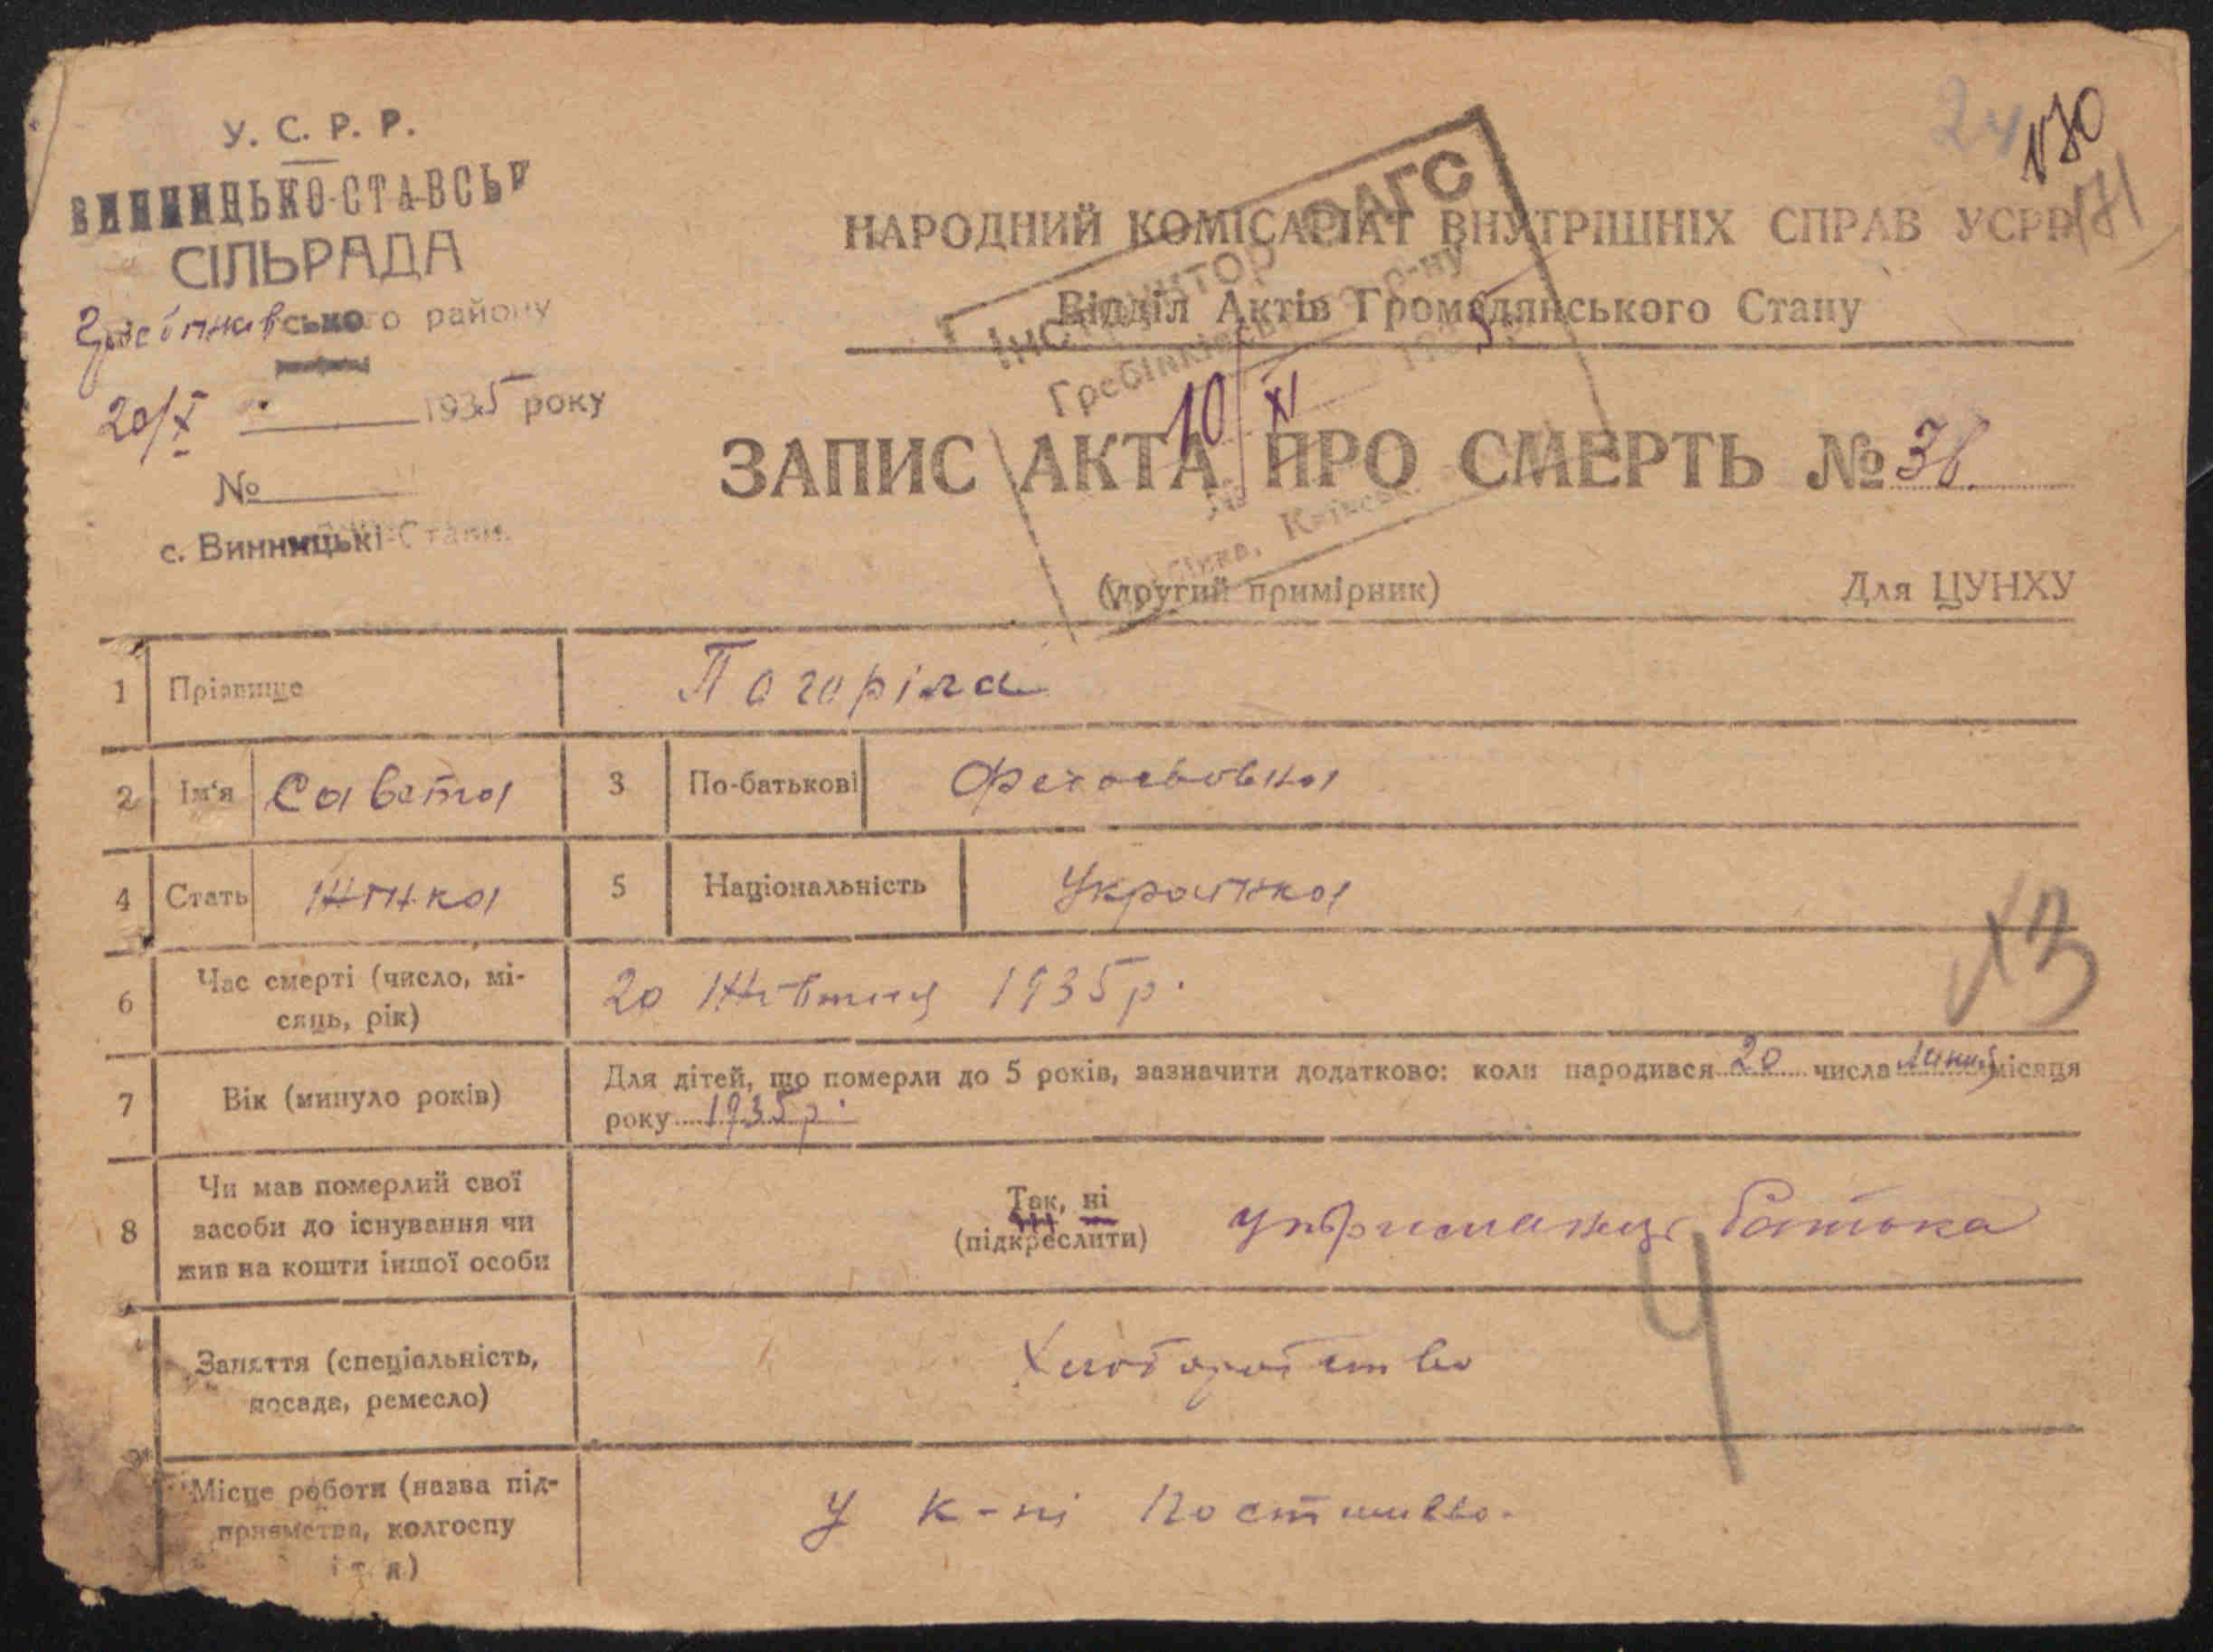 У. С. Р. Р.
ВИННИЦЬКО-СТАВСЬК
СІЛЬРАДА
ського району
20/X 1935 року
№
с. Винницькі-Стави.
24
170
171
НАРОДНИЙ КОМІСАРІАТ ВНУТРІШНІХ СПРАВ УСРР
Відділ Актів Громадянського Стану
Інспектор ЗАГС
Гребінківського р-ну
10/XI 1935
ЗАПИС АКТА ПРО СМЕРТЬ № 36
(другий примірник) Для ЦУНХУ
1 Прізвище Погоріла
2 Ім'я Савета 3 По-батькові
4 Стать Жінка 5 Національність Українка
6 Час смерті (число, мі-
сяць, рік) 20 Жовтня 1935 р.
7 Вік (минуло років) Для дітей, що померли до 5 років, зазначити додатково: коли народився 20 числа місяця
року 1935 р.
8 Чи мав померлий свої
засоби до існування чи
жив на кошти іншої особи
Так, ні
(підкреслити) батька
4
Заняття (спеціальність,
посада, ремесло) Хліборобство
Місце роботи (назва під-
приємства, колгоспу
і т. д.) У к-пі